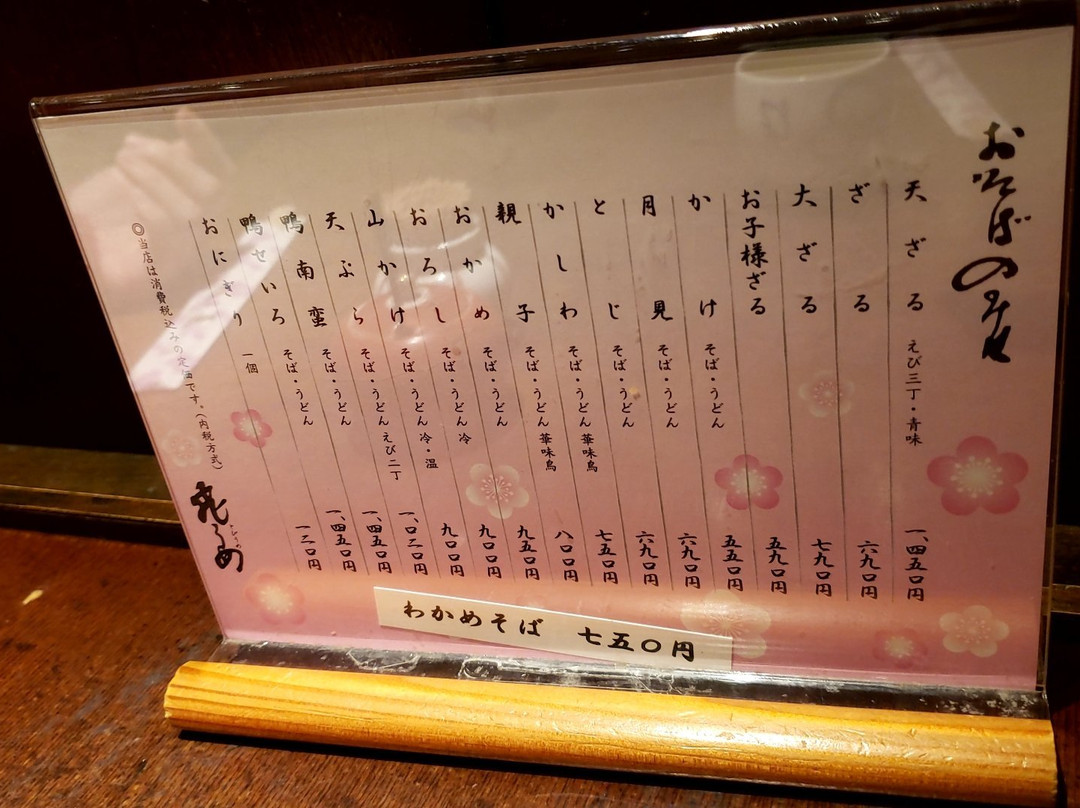 おそばのみせ
天ざる えび三丁・青味 一、四五〇円
ざる 六九〇円
大ざる 七九〇円
お子様ざる 五九〇円
かけ そば・うどん 五五〇円
月見 そば・うどん 六九〇円
とじ そば・うどん 六九〇円
かしわ そば・うどん 華味鳥 七五〇円
親子 そば・うどん 華味鳥 八〇〇円
おかめ そば・うどん 九五〇円
おろし そば・うどん 冷 九〇〇円
山かけ そば・うどん 冷・温 九〇〇円
天ぷら そば・うどん えび二丁 一、〇二〇円
鴨南蛮 そば・うどん 一、四五〇円
鴨せいろ そば・うどん 一、四五〇円
おにぎり 一個 一二〇円
◎当店は消費税込みの定価です。(内税方式)
わかめそば 七五〇円